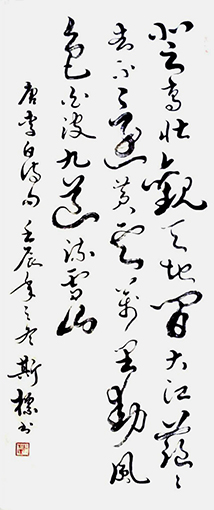 登高壯觀天地間大江茫〻
去不還黃雲萬里動風
色白波九道流雪山
唐李白詩句 壬辰年之冬 斯標書